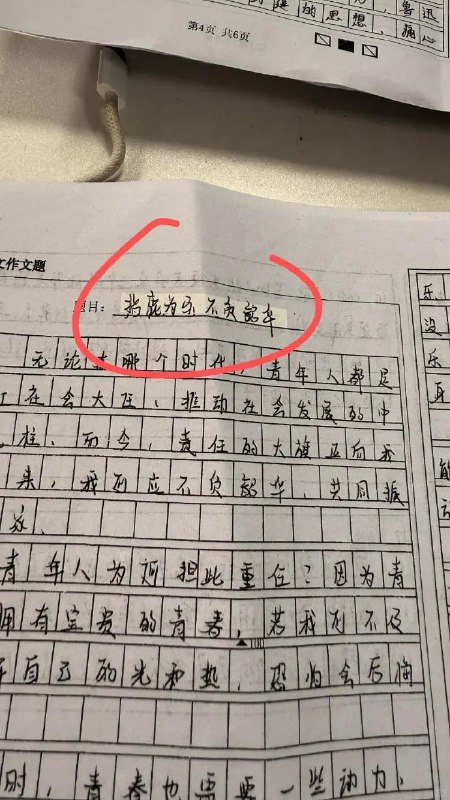 的思想，鲁迅
第4页 共6页
文作文题
题目：指鹿为乐 不负韶华
无论在哪个时代，青年人都是
在会大压，推动在会发展的中
柱，而今，责任的大旗正向我
来，我们应不负韶华，共同振
青年人为何担此重任？因为青
拥有宝贵的青春，若我们不及
自己的光和热，恐怕会后悔
时，青春也需要一些动力，
乐
没
乐
身
能